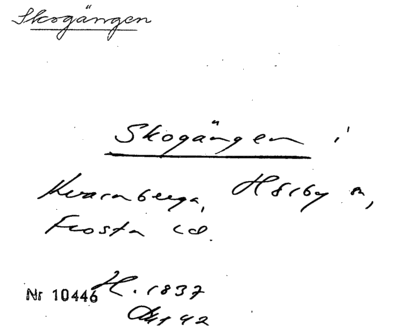 Skogängen
Skogängen i
Kvarnberga, Hörby sn,
Frosta hd.
Nr 10446 H. 1837
1942